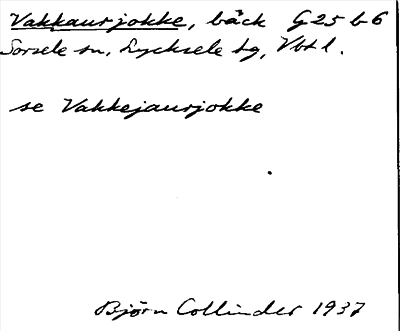 Vakkaurjokke, bäck G25 b 6
Sorsele sn, Lycksele tg, Vbtl.
se Vakkejaurjokke
Björn Collinder 1937